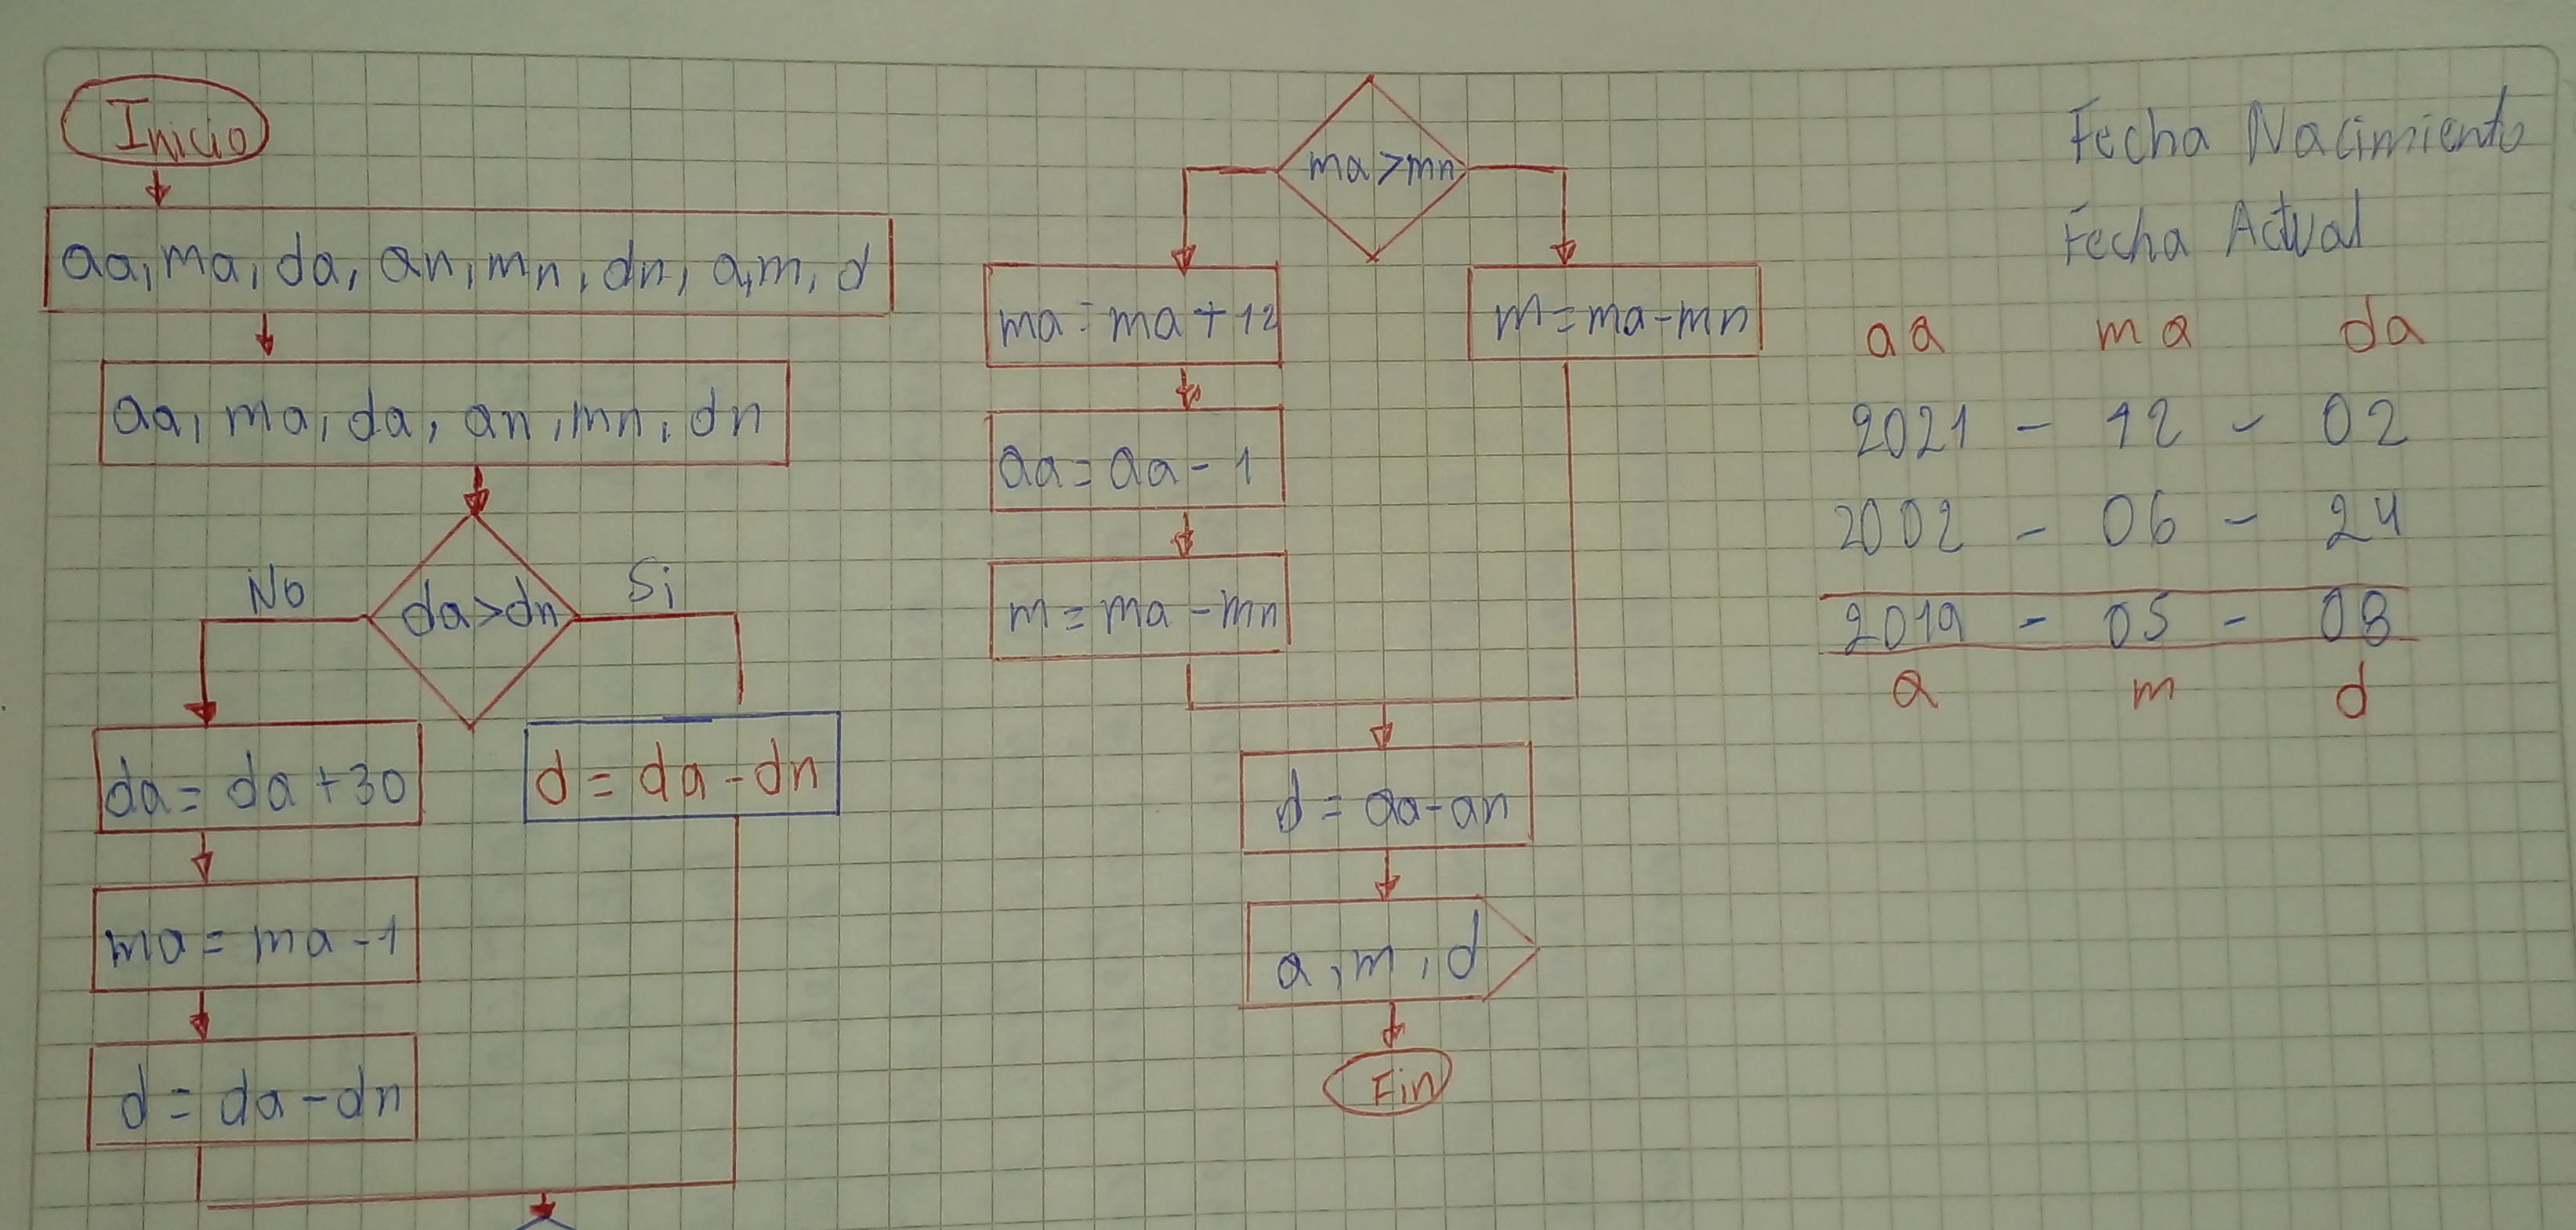 Inicio
aa, ma, da, an, mn, dn, a, m, d
aa, ma, da, an, mn, dn
da>dn
No
Si
da= da +30
d = da - dn
ma = ma -1
d = da - dn
ma >mn
ma = ma + 12
m = ma - mn
aa = aa - 1
m = ma - mn
d = aa - an
a, m, d
Fin
Fecha Nacimiento
Fecha Actual
aa ma da
2021 - 12 - 02
2002 - 06 - 24
2019 - 05 - 08
a m d